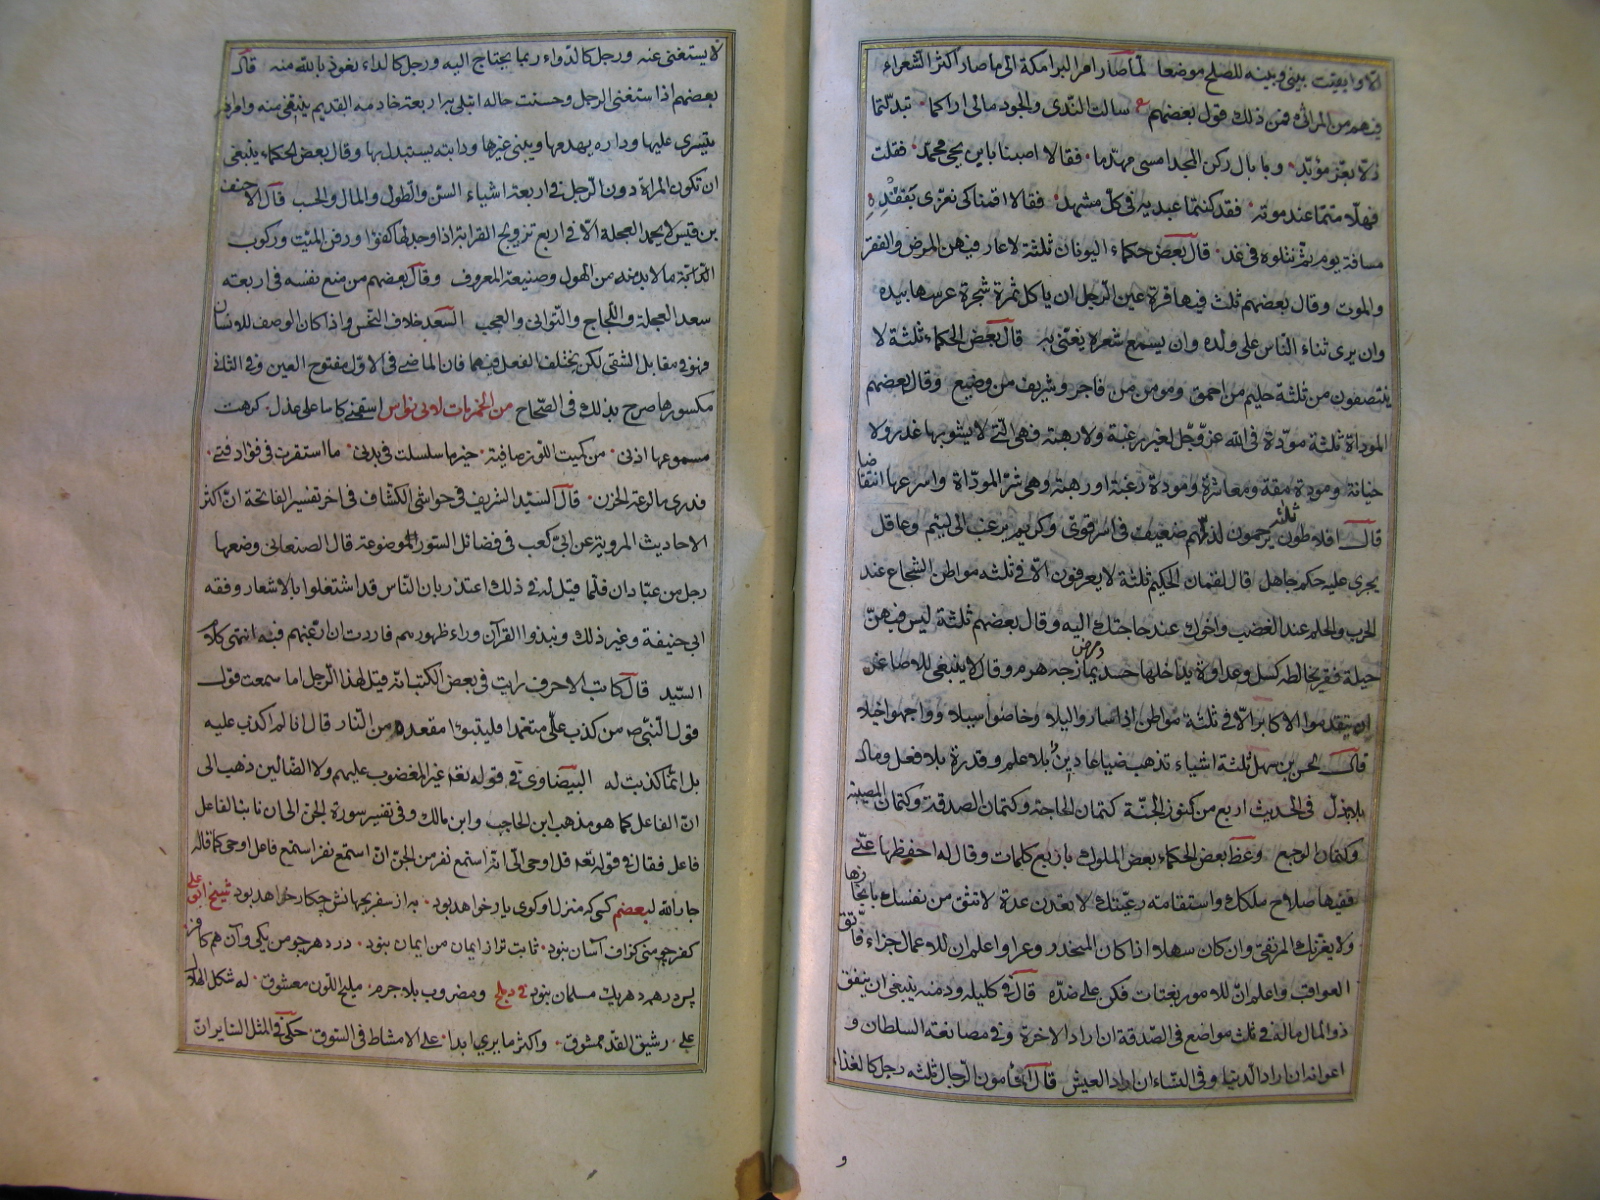 الا وابقيت بينى وبينه للصلح موضعا لما صار امر البرامكة الى ما صار اكثر الشعراء
فيهم من المراثى فمن ذلك قول بعضهم سالت الندى والجود مالى اراكما تبدلتما
ذلا بعز مؤبد وما بال ركن المجد امسى مهدما فقالا اصبنا بابن يحيى محمد فقلت
فهلا متما عند موته فقد كنتما عبديه فى كل مشهد فقالا اقمنا كى نعزى بفقده
مسافة يوم ثم نتلوه فى غد قال بعض حكماء اليونان ثلثة لا عار فيهن المرض والفقر
والموت وقال بعضهم ثلث فيها قرة عين الرجل ان ياكل ثمرة شجرة غرسها بيده
وان يرى ثناء الناس على ولده وان يسمع شعره يغنى به قال بعض الحكماء ثلثة لا
ينتصفون من ثلثة حليم من احمق ومومن من فاجر وشريف من وضيع وقال بعضهم
الموداة ثلثة مودة فى الله عز وجل لغير رغبة ولا رهبة فهى التى لا يشوبها غدر ولا
خيانة ومودة مقة ومعاشرة ومودة رغبة او رهبة وهى شر الموداة واسرعها انتقاضا
قال افلاطون ثلثة يرحمون لذلهم ضعيف فى اسر قوى وكريم يرغب الى لئيم وعاقل
يجرى عليه حكم جاهل قال لقمان الحكيم ثلثة لا يعرفون الا فى ثلثه مواطن الشجاع عند
الحرب والحلم عند الغضب واخوك عند حاجتك اليه وقال بعضهم ثلثة ليس فيهن
حيلة فقر يخالطه كسل وعداوة يداخلها حسد ومرض يمازجه هرم وقال لا ينبغى للاصاغر
ان يتقدموا الاكابر الا فى ثلثة مواطن اذا ساروا ليلا وخاضوا سيلا وواجهوا خيلا
قال الحسن بن سهل ثلثة اشياء تذهب ضياعا دين بلا علم وقدرة بلا فعل ومال
بلا بذل فى الحديث اربع من كنوز الجنة كتمان الحاجة وكتمان الصدقة وكتمان المصيبة
وكتمان الوجع وعظ بعض الحكماء بعض الملوك باربع كلمات وقال له احفظها عنى
ففيها صلاح ملكك واستقامة رعيتك لا تعدن عدة لا تثق من نفسك بانجازها
ولا يغرنك المرتقى وان كان سهلا اذا كان المنحدر وعرا واعلم ان للاعمال جزاء فاتق
العواقب واعلم ان للامور بغتات فكن على ضده قال فى كليله ودمنه ينبغى ان ينفق
ذو المال ماله فى ثلث مواضع فى الصدقة ان اراد الاخرة وفى مصانعة السلطان و
اعوانه ان اراد الدنيا وفى النساء ان اراد العيش قال المامون الرجال ثلثه رجل كالغذاء
و
لا يستغنى عنه ورجل كالدواء ربما يحتاج اليه ورجل كالداء نعوذ بالله منه قال
بعضهم اذا استغنى الرجل وحسنت حاله ابتلى به اربعة خادمه القديم ينتقى منه وامراته
يتسرى عليها وداره يهدمها ويبنى غيرها ودابته يستبدل بها وقال بعض الحكماء ينبغى
ان تكون المراة دون الرجل فى اربعة اشياء السن والطول والمال والحسب قال الاحنف
بن قيس لا يحمد العجلة الا فى اربع تزويج القرابة اذا وجد لها كفؤا ودفن الميت وركوب
ما لا بد منه من الهول وصنيعة المعروف وقال بعضهم من منع نفسه فى اربعة
سعد العجلة واللجاج والتوانى والعجب السعد خلاف النحس واذا كان الوصف للانسان
فهو فى مقابل الشقى لكن يختلف الفعل فيهما فان الماضى فى الاول مفتوح العين وفى الثانى
مكسورها صرح بذلك فى الصحاح من الخمريات لابى نواس اسقنى كاسا على عذل كرهت
مسموعها اذنى من كميت اللون صافية خير ما سلسلت فى بدنى ما استقرت فى فؤاد فتى
فدرى ما لوعة الحزن قال السيد الشريف فى حواشى الكشاف فى اخر تفسير الفاتحة ان اكثر
الاحاديث المروية عن ابى كعب فى فضائل السور موضوعة قال الصنعانى وضعها
رجل من عبادان فلما قيل له فى ذلك اعتذر بان الناس قد اشتغلوا بالاشعار وفقه
ابى حنيفة وغير ذلك ونبذوا القرآن وراء ظهورهم فاردت ان ارغبهم فيه انتهى كلام
السيد قال كاتب الاحرف رايت فى بعض الكتب انه قيل لهذا الرجل اما سمعت قول
قول النبى ص من كذب على متعمدا فليتبوء مقعده من النار قال انا لم اكذب عليه
بل انما كذبت له البيضاوى فى قوله تعه غير المغضوب عليهم ولا الضالين ذهب الى
ان الفاعل كما هو مذهب ابن الحاجب وابن مالك وفى تفسير سورة الجن الى ان نائب الفاعل
فاعل فقال فى قوله تعه قل اوحى الى انه استمع نفر من الجن ان استمع نفر استمع فاعل اوحى كما قاله
جار الله لبعضهم كسى كه منزل او كوى يار خواهد بود به از سفر بجهانش چكار خواهد بود شيخ ابو على
كفر چو منى گزاف آسان نبود ثابت تر از ايمان من ايمان نبود در دهر چو من يكى وآن هم كافر
پس در همه دهر يك مسلمان نبود ومضروب بلا جرم مليح اللون معشوق له شكل الهلال
على رشيق القد ممشوق واكثر ما يرى ابدا على الامشاط فى السوق حكى فى المثل الساير ان